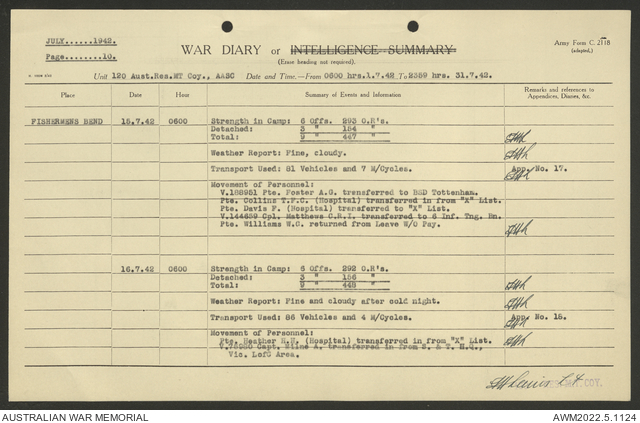 JULY......1942.
Page........10.
WAR DIARY or INTELLIGENCE SUMMARY
(Erase heading not required).
Army Form C. 2118
(adapted.)
Unit 120 Aust.Res.MT Coy., AASC Date and Time.—From 0600 hrs.1.7.42 To 2359 hrs. 31.7.42.
Place Date Hour Summary of Events and Information Remarks and references to
Appendices, Diaries, &c.
FISHERMENS BEND 15.7.42 0600 Strength in Camp: 6 Offs. 293 O.R's.
Detached: 3 " 154 "
Total: 9 " 447 "
Weather Report: Fine, cloudy.
Transport Used: 81 Vehicles and 7 M/Cycles. App. No. 17.
Movement of Personnel:
V.188951 Pte. Foster A.G. transferred to BSD Tottenham.
Pte. Collins T.F.C. (Hospital) transferred in from "X" List.
Pte. Davis F. (Hospital) transferred to "X" List.
V.144689 Cpl. Matthews C.R.I. transferred to 6 Inf. Tng. Bn.
Pte. Williams W.C. returned from Leave W/O Pay.
16.7.42 0600 Strength in Camp: 6 Offs. 292 O.R's.
Detached: 3 " 156 "
Total: 9 " 448 "
Weather Report: Fine and cloudy after cold night.
Transport Used: 86 Vehicles and 4 M/Cycles. App. No. 18.
Movement of Personnel:
Pte. Heather H.R. (Hospital) transferred in from "X" List.
Capt. Milne A. transferred in from S. & T. H.Q.,
Vic. LofC Area.
COY.
AUSTRALIAN WAR MEMORIAL AWM2022.5.1124